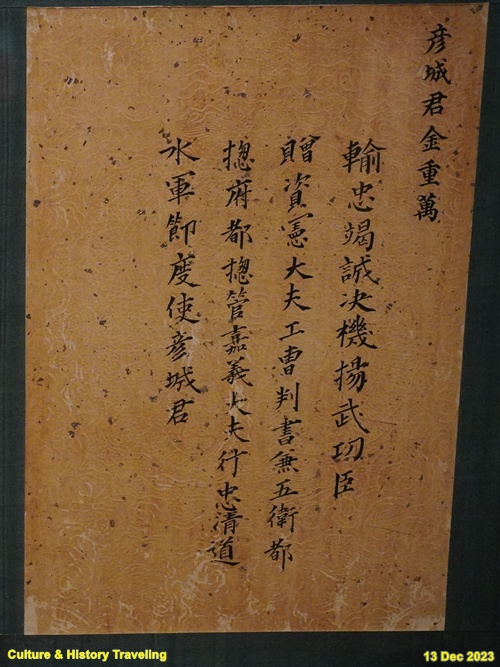 彦城君金重萬
輸忠竭誠决機揚武功臣
贈資憲大夫工曺判書兼五衛都
摠府都摠管嘉義大夫行忠清道
水軍節度使彦城君
Culture & History Traveling
13 Dec 2023